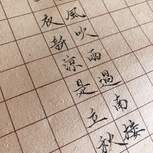 風吹雨過南樓
夜新涼是立秋